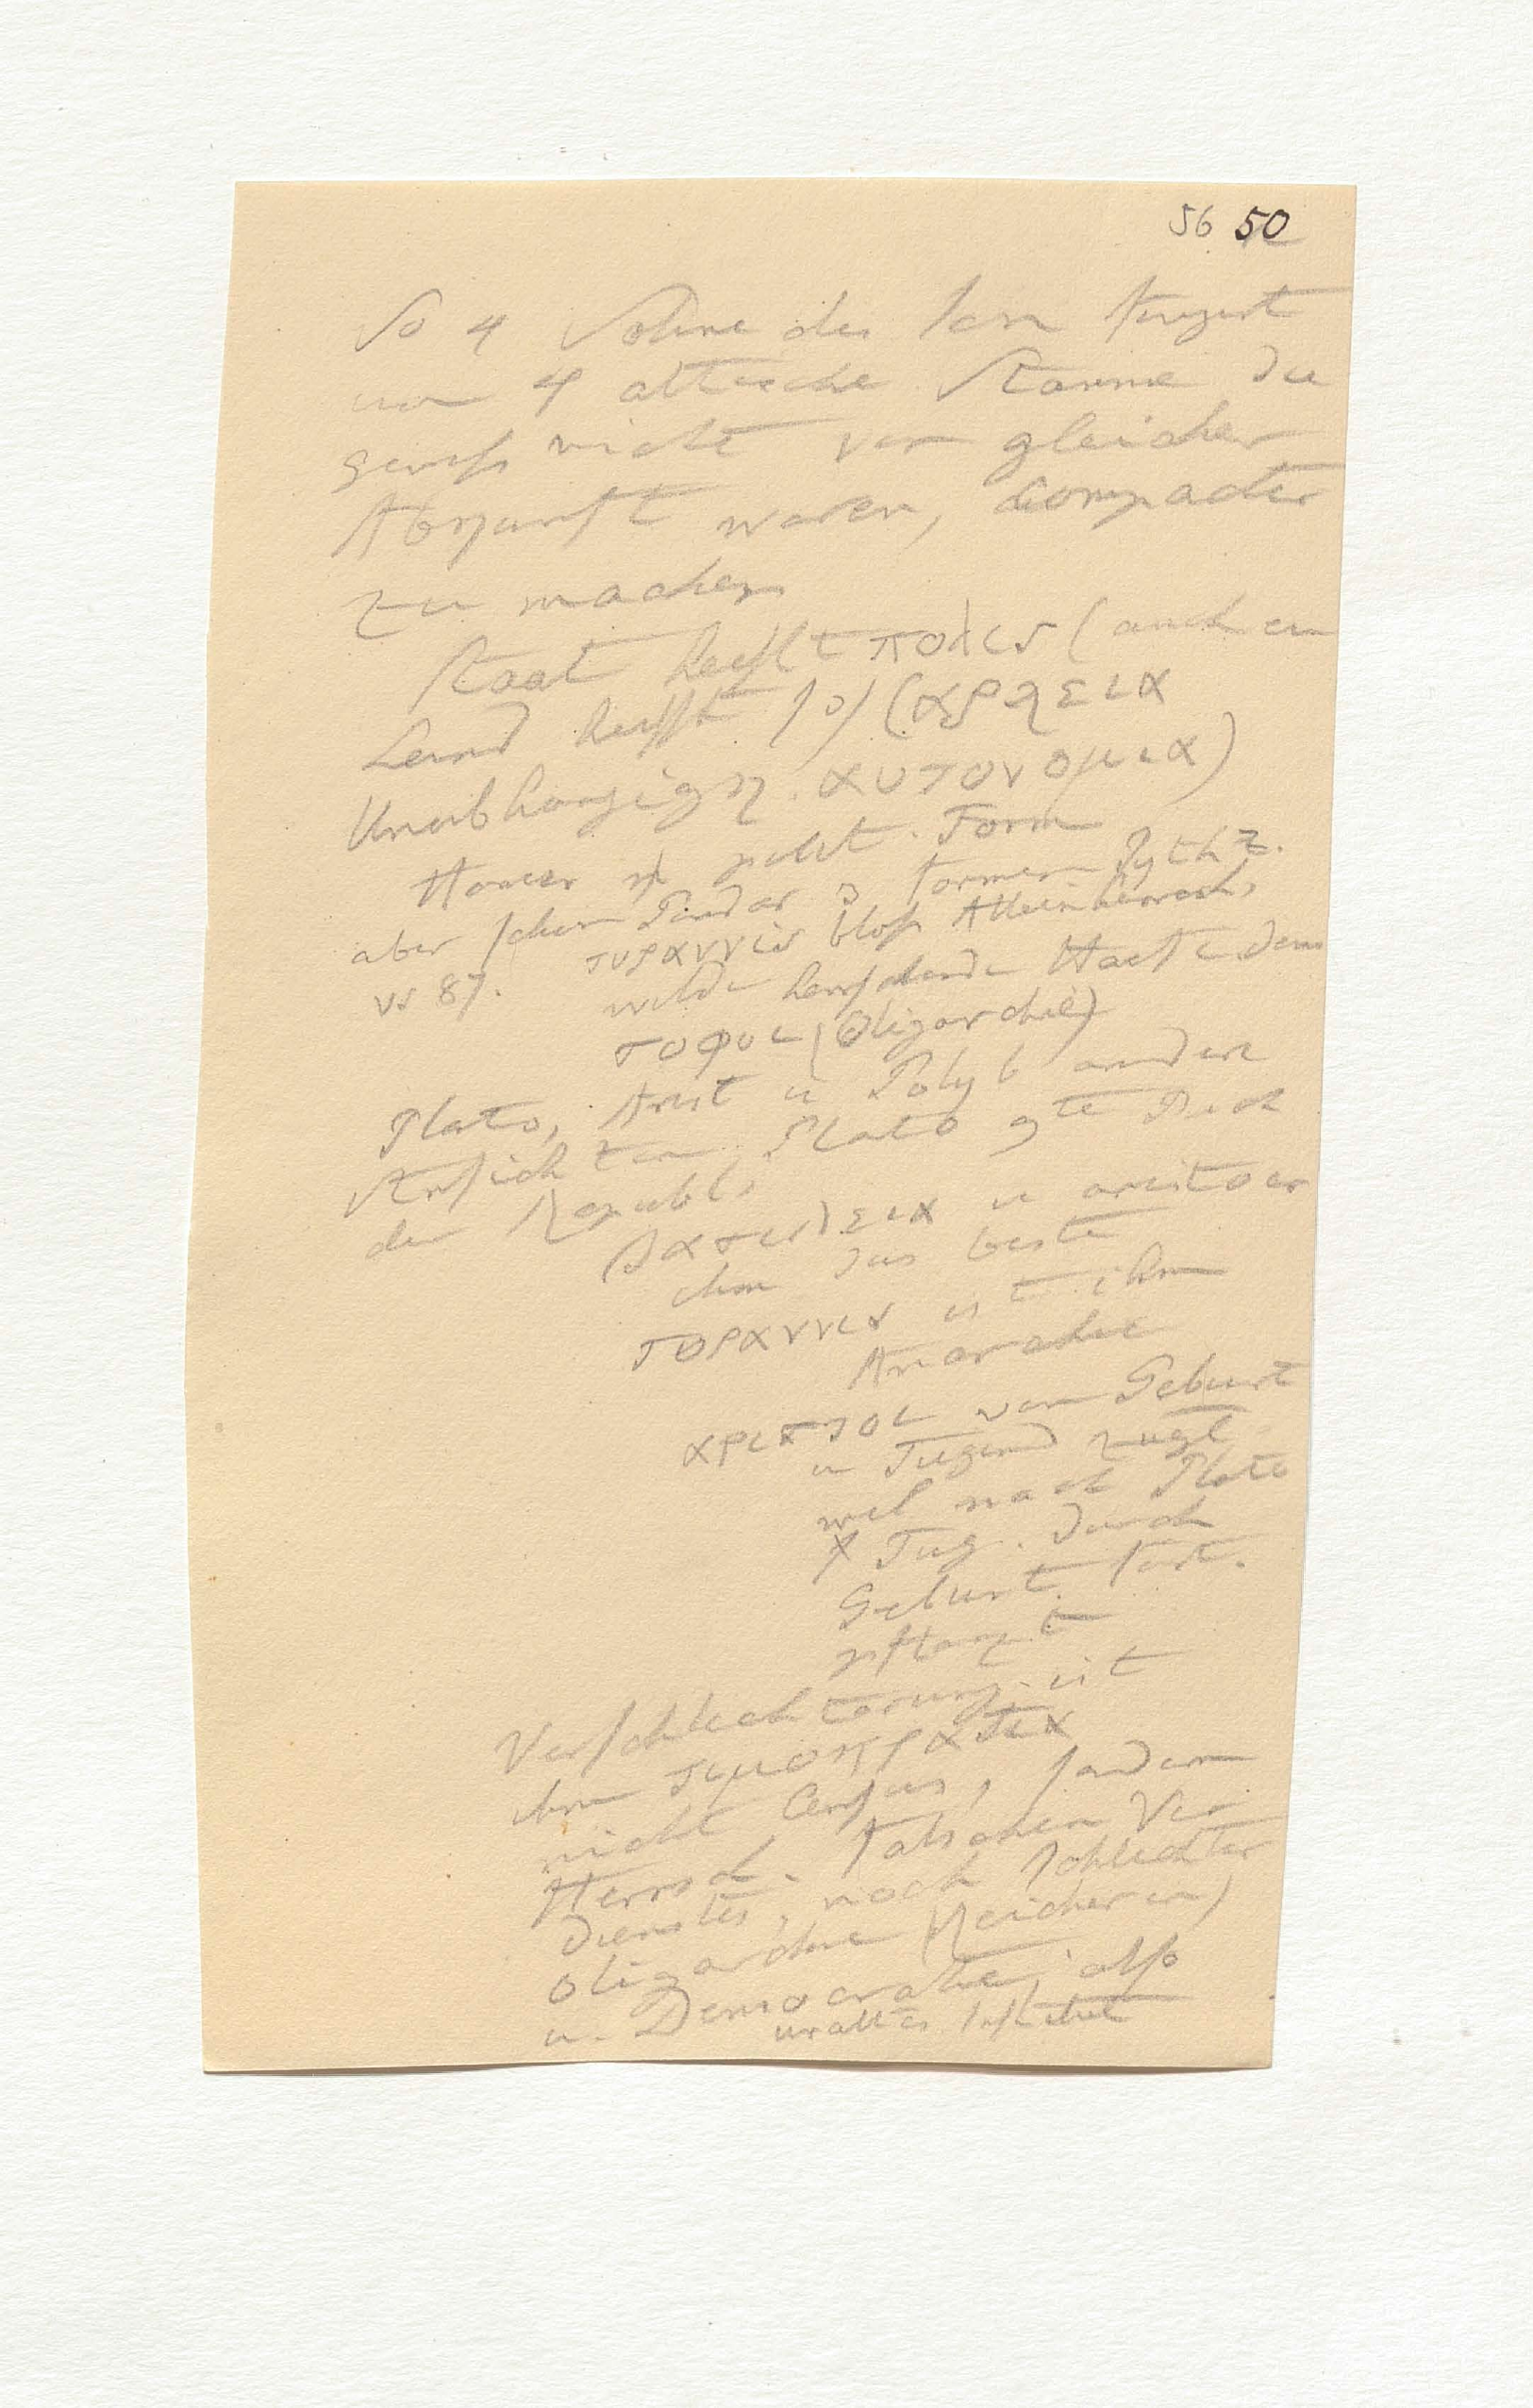 56 50
So 4 Söhne des Ion fingirt
um 4 attische Stämme die
gewiß nicht von gleicher
Abkunft waren, compacter
zu machen
Staat heißt πολις (auch ein
Land heißt so)
Unabhängigk. αυτονομια)
Homer polit. Form
aber schon Pindar 3 Formen Pyth 2.
vs 87. τυραννις bloß Alleinherrsch,
wilde herschende
σοφοι (Oligarchie)
Plato, Arist u Polyb andere
Ansichten. Plato 9te Buch
der Republ.
βασιλεια u aristocr
ihm das beste
τυραννις ist ihm
Anarchie
αριστοι von Geburt
u Tugend zugl
weil nach Plato
Tug. durch
Geburt fort.
pflanzt
Verschlechterung ist
ihm τιμοκρατια
nicht Census, sondern
Herrsch. falschen Ver
dienstes, noch schlechter
Oligarchie (Reicheren)
u. Democratie, also
uraltes Institut